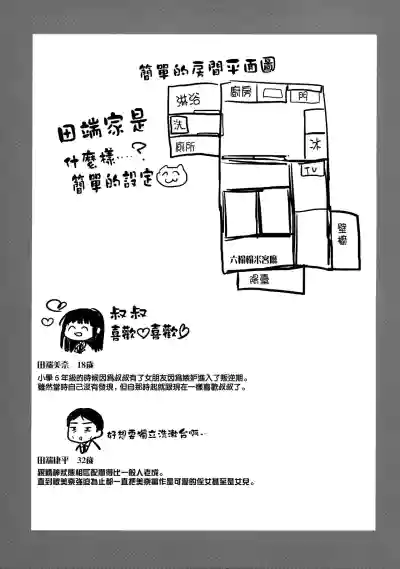 簡單的房間平面圖
田端家是
什麼樣……?
簡單的設定
淋浴
廚房
門
洗
廁所
冰
TV
壁櫥
六榻榻米客廳
陽臺
叔叔
喜歡♡喜歡♡
田端美奈 18歲
小學6年級的時候因為叔叔有了女朋友因為嫉妒進入了叛逆期。
雖然當時自己沒有發現，但自那時起就跟現在一樣喜歡叔叔了。
好想要獨立洗漱台啊~
田端康平 32歲
一般人老成。
直到被美奈強迫為止都一直把美奈當作是可愛的侄女甚至是女兒。